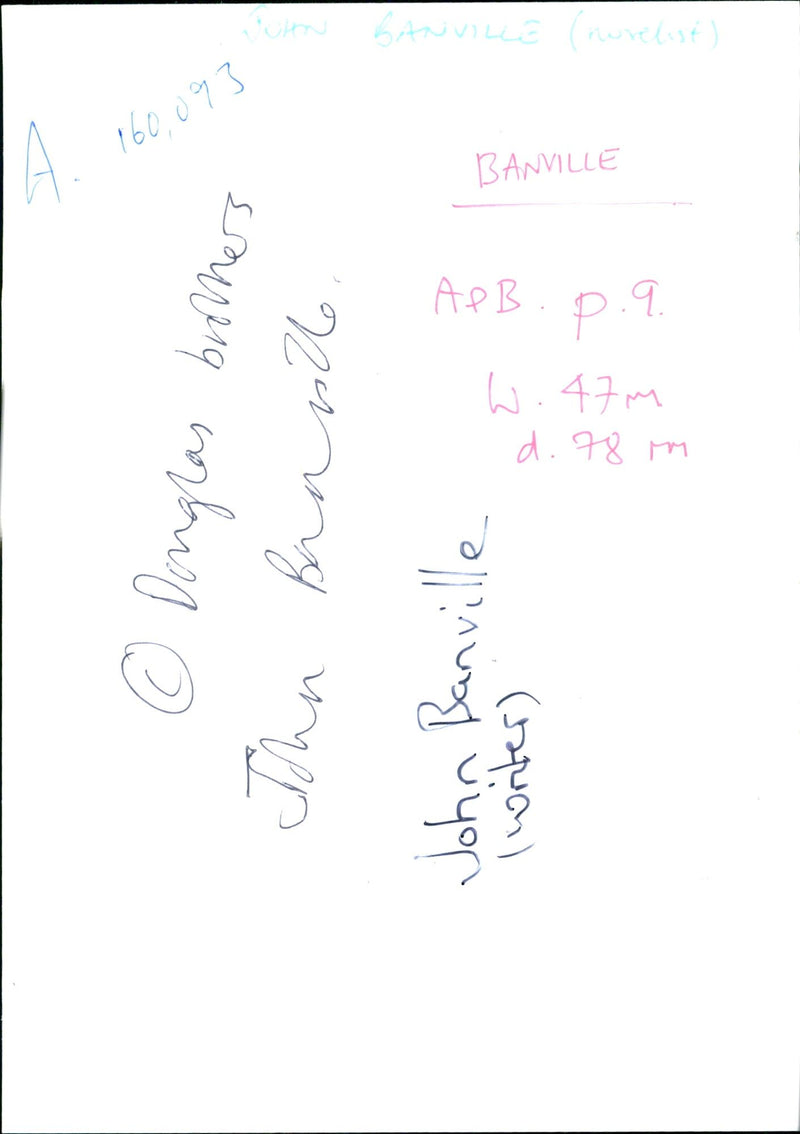 JOHN BANVILLE (novelist)
A. 160,093
BANVILLE
A&B. p.9.
W. 47m
d. 78 m
© Douglas brothers
John Banville.
John Banville
(writer)